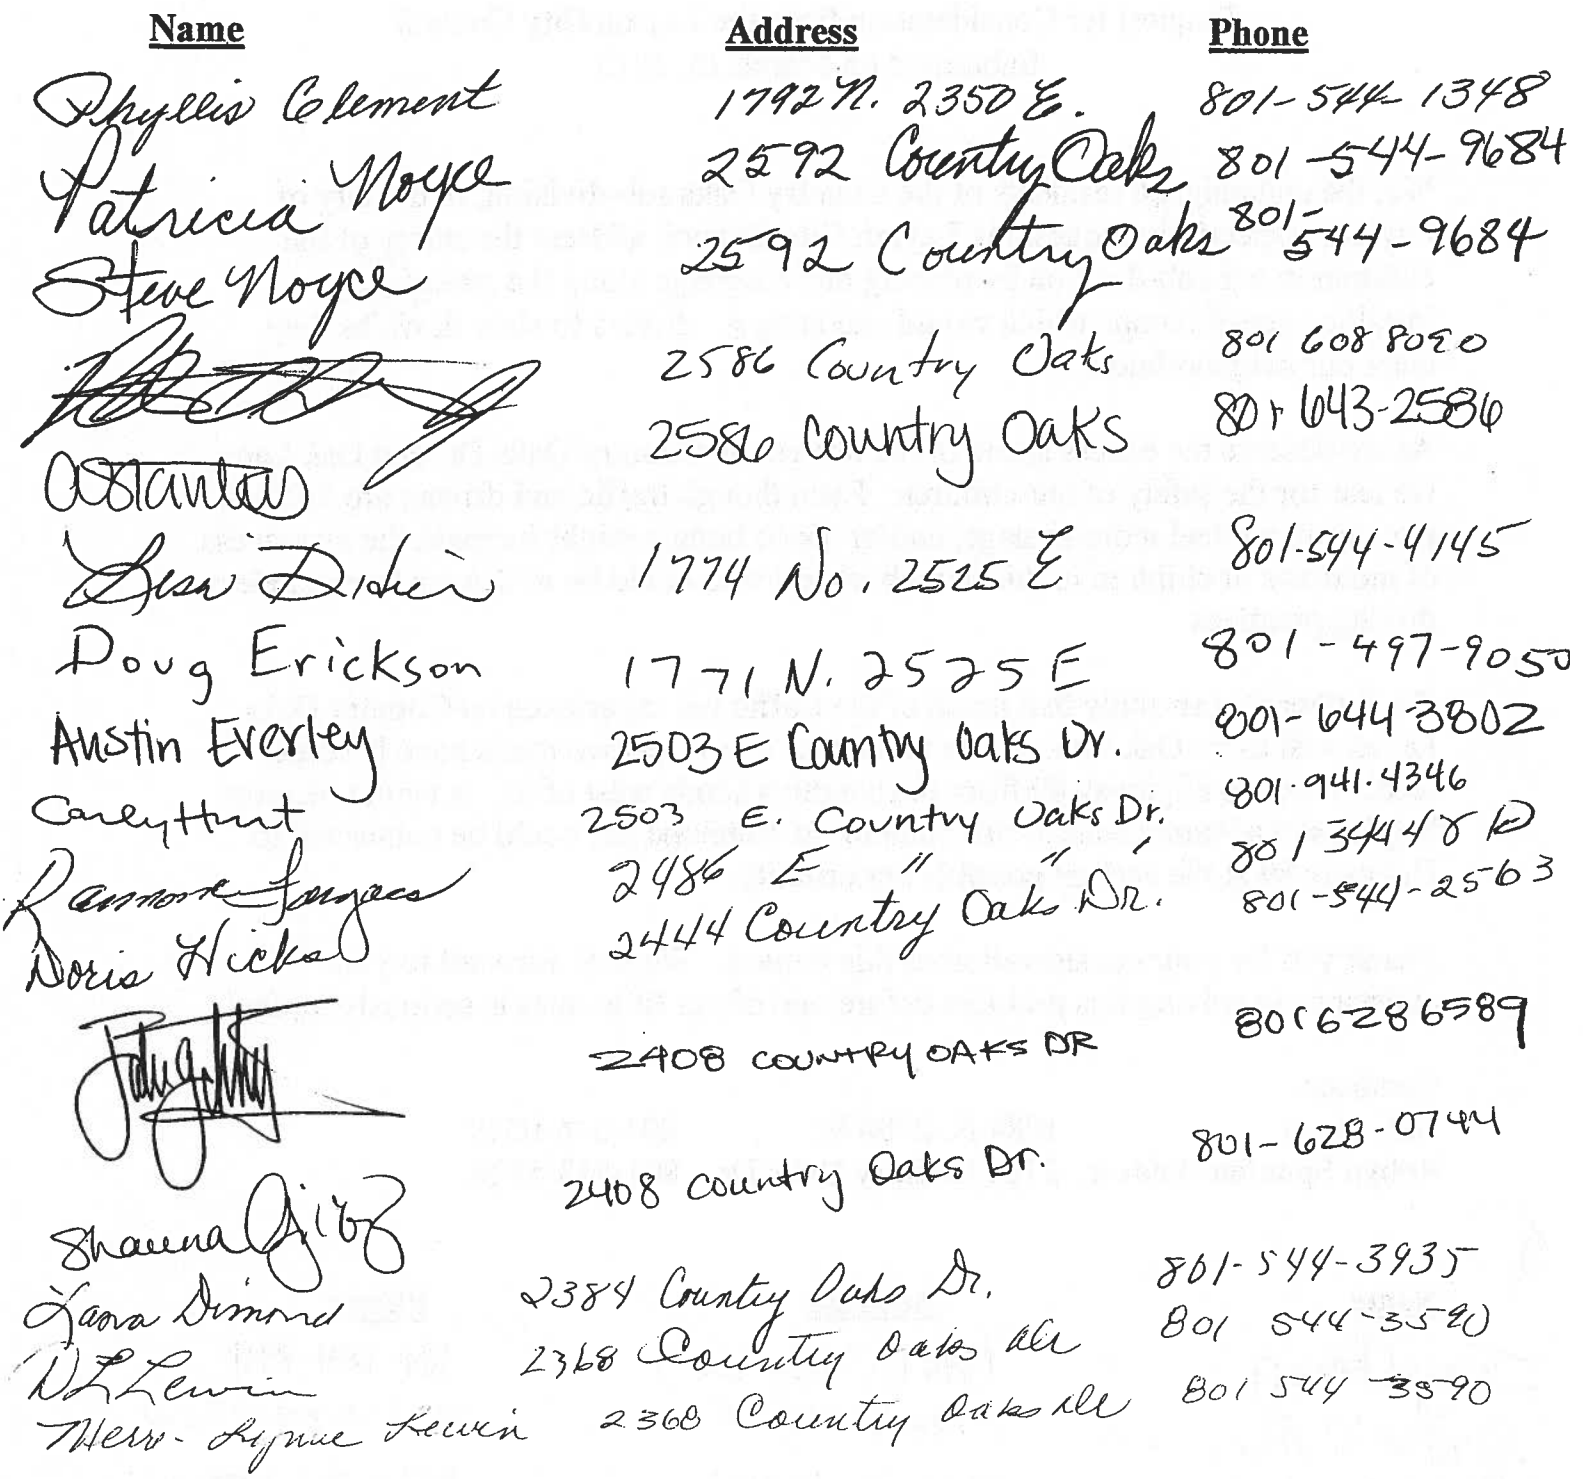 Name Address Phone
Phyllis Clement 1792 N. 2350 E. 801-544-1348
Patricia Noyce 2592 Country Oaks 801-544-9684
Steve Noyce 2592 Country Oaks 801-544-9684
2586 Country Oaks 801 608 8090
2586 Country Oaks 801 643-2586
Lesa Didier 1774 No. 2525 E 801-544-4145
Doug Erickson 1771 N. 2525 E 801-497-9050
Austin Everley 2503 E Country Oaks Dr. 801-644-3802
Carley Hunt 2503 E. Country Oaks Dr. 801-941-4346
2486 E " " "
Doris Hicks 2444 Country Oaks Dr. 801-544-2563
2408 COUNTRY OAKS DR 8016286589
Shauna 2408 Country Oaks Dr. 801-628-0744
Lana Dimond 2384 Country Oaks Dr. 801-544-3935
D L Lewin 2368 Country Oaks Dr 801 544-3590
Merri-Lynne Lewin 2368 Country Oaks Dr 801 544-3590